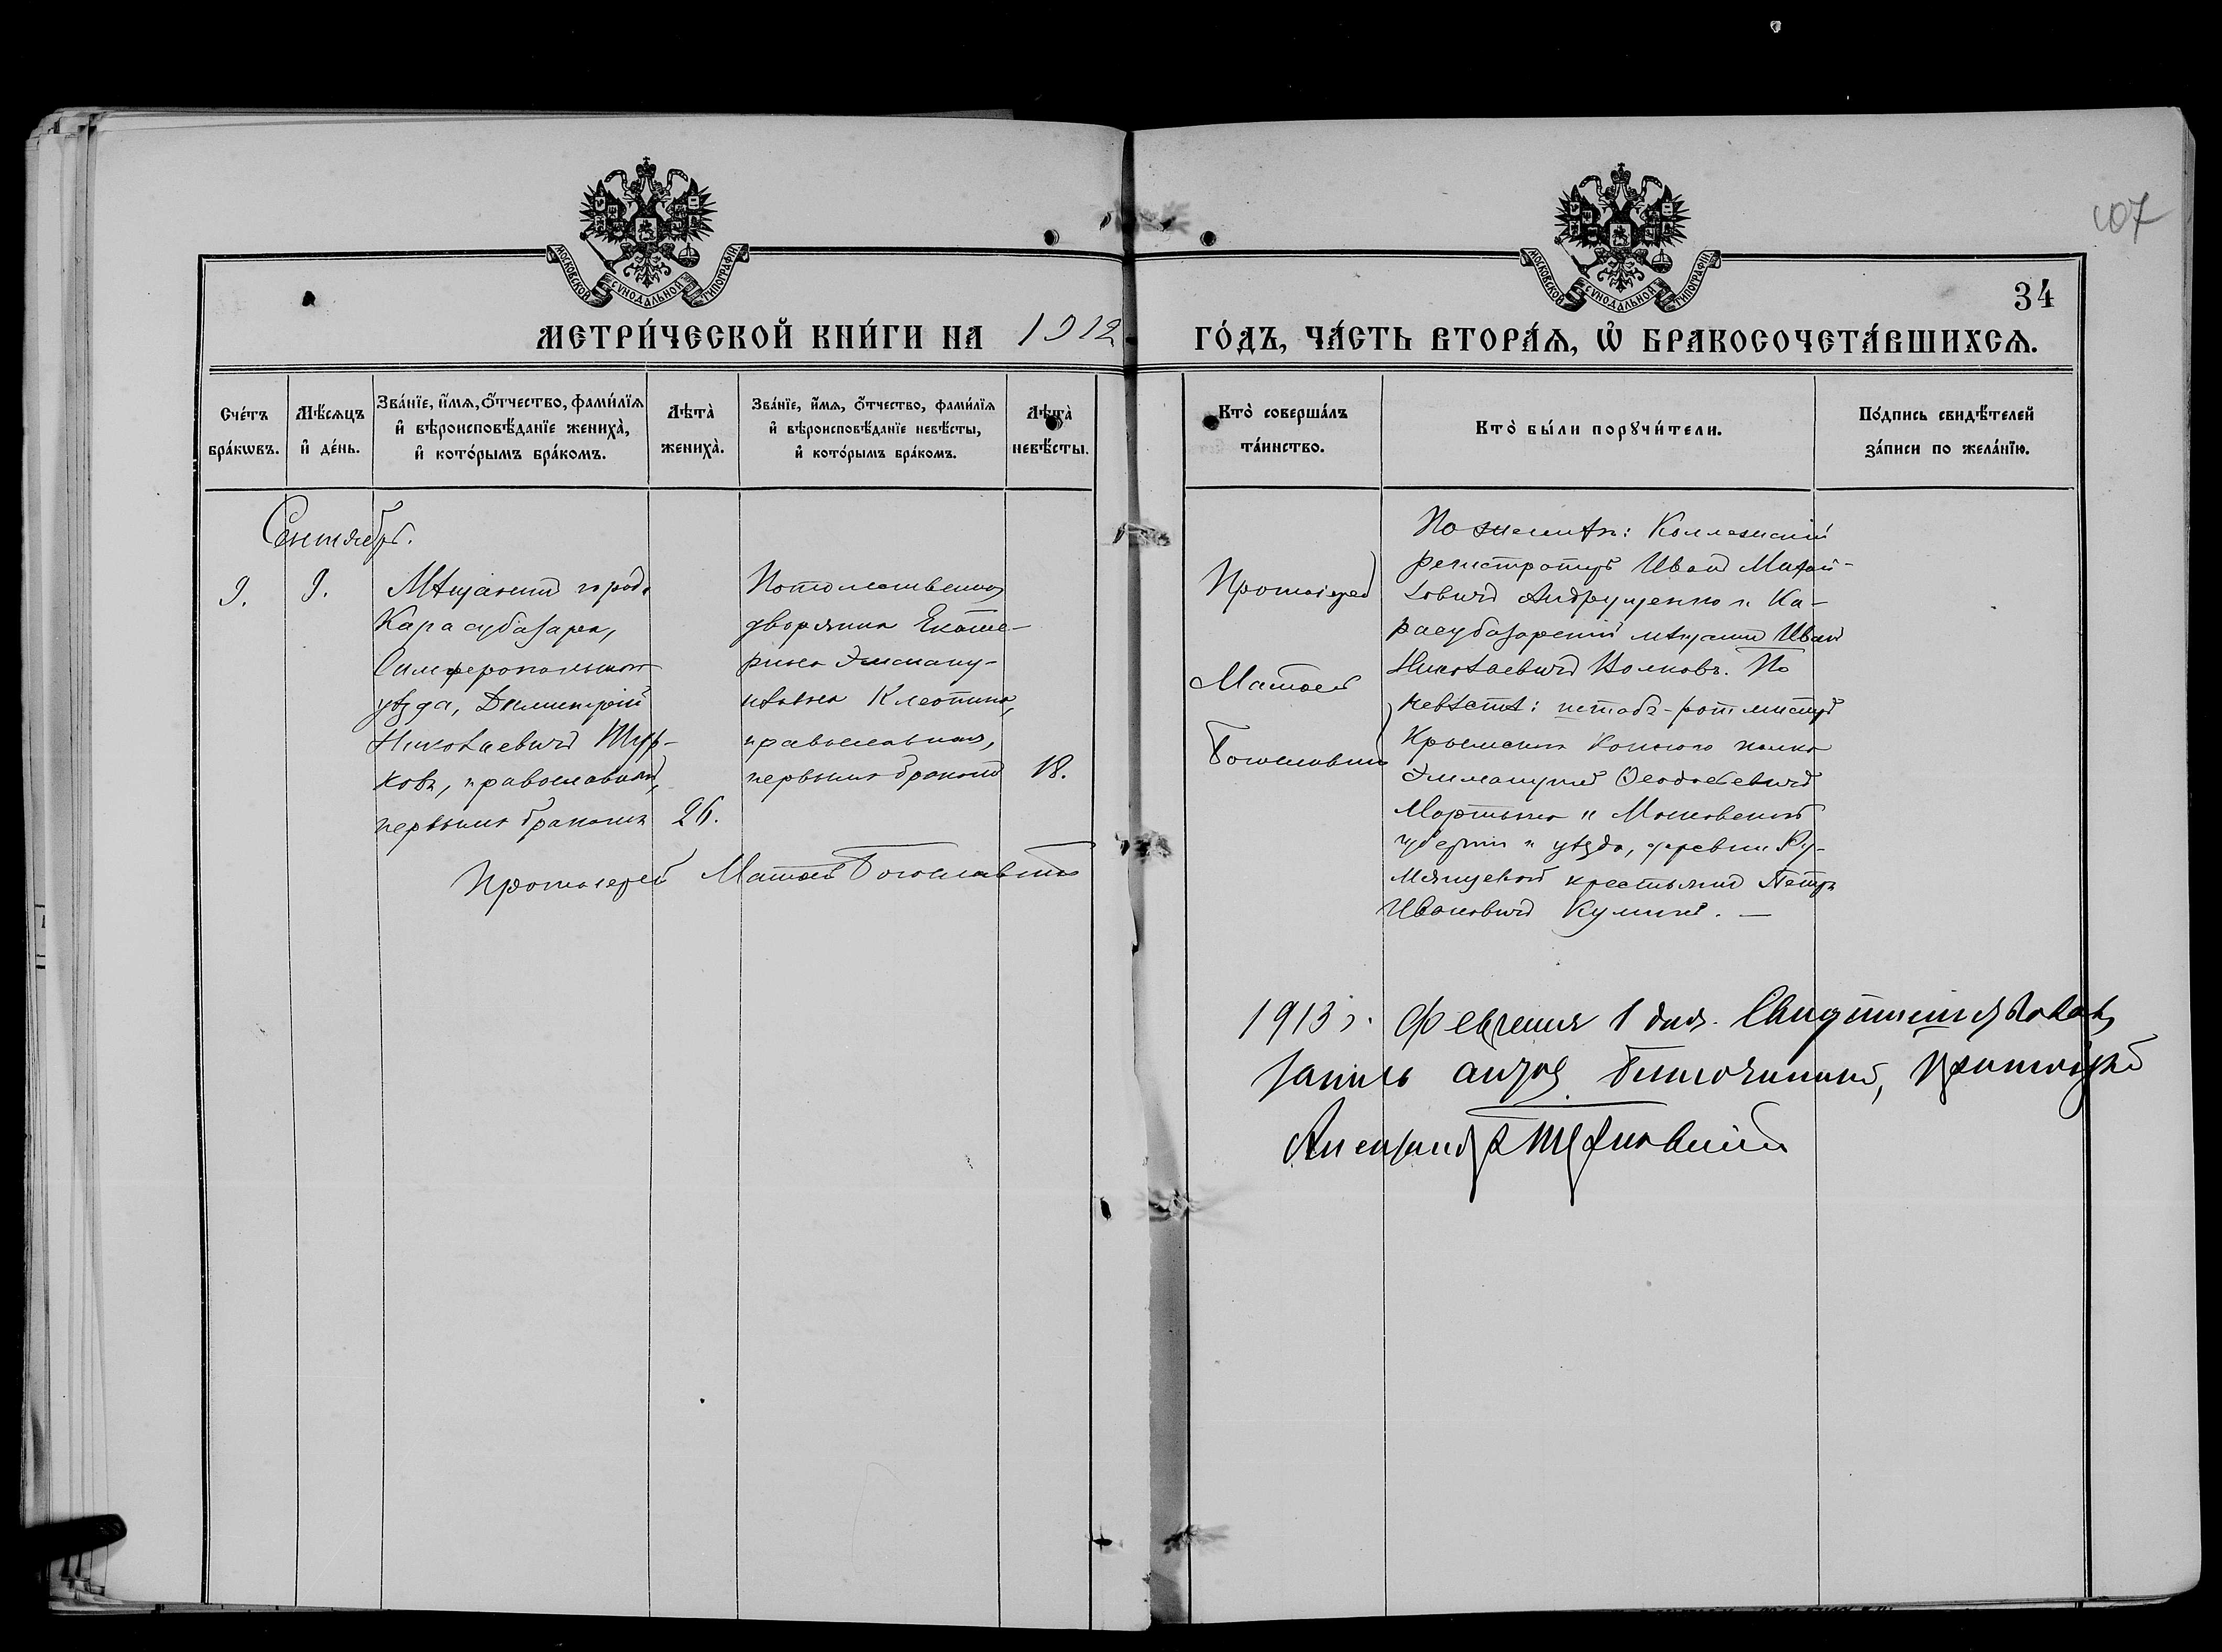 107
МОСКОВСКОЙ СѴНОДАЛЬНОЙ ТИПОГРАФІИ
МОСКОВСКОЙ СѴНОДАЛЬНОЙ ТИПОГРАФІИ
34
МЕТРИ́ЧЕСКОЙ КНИ́ГИ НА 1912
ГО́ДЪ, ЧА́СТЬ ВТОРА́Ѧ, Ѡ҆ БРАКОСОЧЕТА́ВШИХСѦ.
Сче́тъ бра́кѡвъ.
Мѣ́сѧцъ и҆ де́нь.
Зва́нїе, и҆́мѧ, ѻ҆́тчество, фами́лїѧ
и҆ вѣроисповѣ́данїе жениха̀,
и҆ кото́рымъ бра́комъ.
Лѣта̀ жениха̀.
Зва́нїе, и҆́мѧ, ѻ҆́тчество, фами́лїѧ
и҆ вѣроисповѣ́данїе невѣ́сты,
и҆ кото́рымъ бра́комъ.
Лѣта̀ невѣ́сты.
Кто̀ соверша́лъ та́инство.
Кто̀ бы́ли порꙋчи́тели.
По́дпись свидѣ́телей
за́писи по жела́нїю.
Сентябрь.
9.
9.
Мѣщанинъ города
Карасубазара,
Симферопольскаго
уѣзда, Димитрій
Николаевичъ
ковъ, православный,
первымъ бракомъ
26.
Потомственная
дворянка Екате-
рина Эмману-
иловна
православная,
первымъ бракомъ
18.
Протоіерей Матѳей Богословскій
Протоіерей
Матѳей
Богословскій
По женихѣ: Коллежскій
регистраторъ Иванъ Михай-
ловичъ Андрущенко и Ка-
расубазарскій мѣщанинъ Иванъ
Николаевичъ Волковъ. По
невѣстѣ: штабъ-ротмистръ
Крымскаго Коннаго полка
Эммануилъ
Мартыно и Московской
губерніи и уѣзда, деревни Ру-
мянцевой крестьянинъ Петръ
Ивановичъ
1913 г. Февраля 1 дня. Свидѣтельствовалъ
запись сію Благочинный, Протоіерей
Александръ